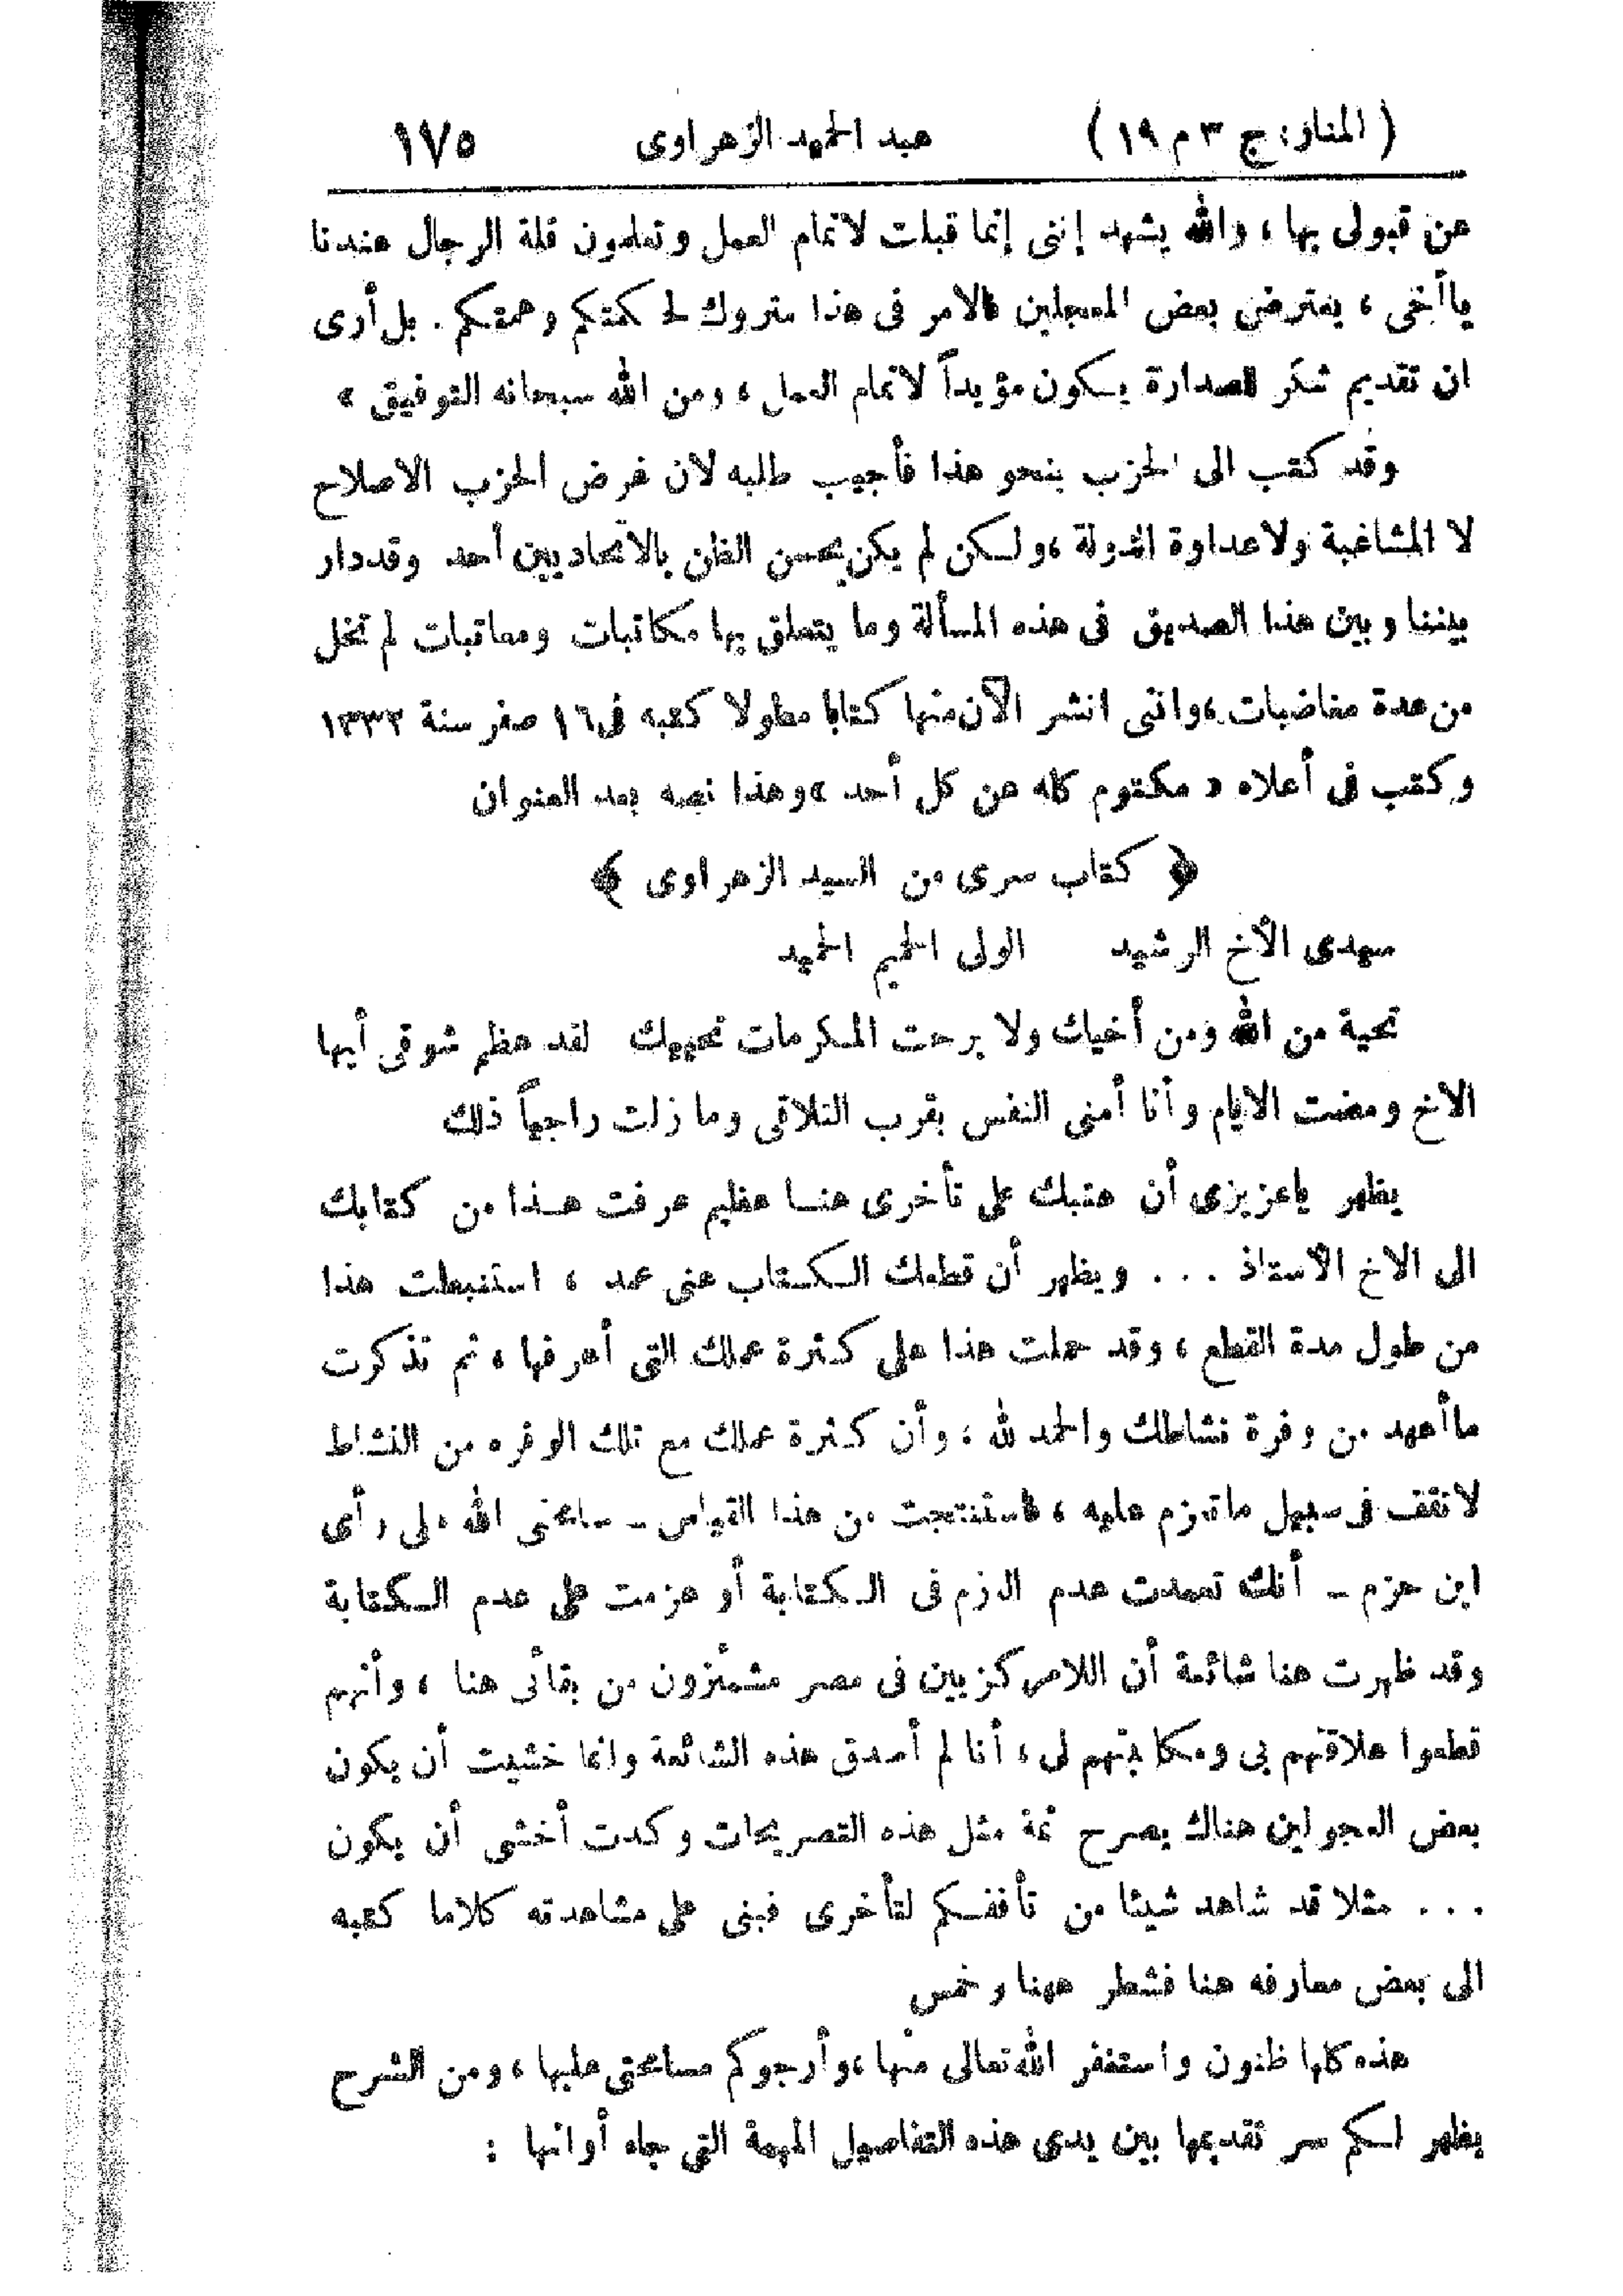 ( المنار: ج ٣ م ١٩ ) عبد الحميد الزهراوى ١٧٥
عن قبولى بها ، والله يشهد إننى إنما قبلت لاتمام العمل وتعلمون قلة الرجال عندنا
ياأخى ، يعترض بعض المعجلين فالامر فى هذا متروك لحكمتكم وهمتكم . بل أرى
ان تقديم شكر للصدارة يكون مؤيداً لاتمام العمل ، ومن الله سبحانه التوفيق »
وقد كتب الى الحزب بنحو هذا فأجيب طلبه لان غرض الحزب الاصلاح
لا المشاغبة ولاعداوة الدولة ، ولكن لم يكن يحسن الظن بالاتحاديين أحد وقددار
بيننا وبين هذا الصديق فى هذه المسألة وما يتعلق بها مكاتبات ومعاتبات لم تخل
من عدة مغاضبات ، واننى انشر الآن منها كتابا مطولا كتبه فى ١٦ صفر سنة ١٣٣٢
وكتب فى أعلاه « مكتوم كله عن كل أحد » وهذا نصه بعد العنوان
﴿ كتاب سرى من السيد الزهراوى ﴾
سيدى الأخ الرشيد الولى الحميم الحميد
تحية من الله ومن أخيك ولا برحت المكرمات تحييك لقد عظم شوقى أيها
الاخ ومضت الايام وأنا أمنى النفس بقرب التلاقى وما زلت راجياً ذلك
يظهر ياعزيزى أن عتبك على تأخرى هنا عظيم عرفت هذا من كتابك
الى الاخ الاستاذ . . . ويظهر أن قطعك الكتاب عنى عمد ، استنبطت هذا
من طول مدة القطع ، وقد حملت هذا على كثرة عملك التى أعرفها ، ثم تذكرت
ماأعهد من وفرة نشاطك والحمد لله ، وأن كثرة عملك مع تلك الوفره من النشاط
لاتقف فى سبيل ماتعزم عليه ، فاستنتجت من هذا القياس ــ سامحنى الله على رأى
ابن حزم ــ أنك تعمدت عدم العزم فى الكتابة أو عزمت على عدم الكتابة
وقد ظهرت هنا شائعة أن اللامركزيين فى مصر مشمئزون من بقائى هنا ، وأنهم
قطعوا علاقتهم بى ومكاتبتهم لى ، أنا لم أصدق هذه الشائعة وانما خشيت أن يكون
بعض العجولين هناك يصرح ثمة مثل هذه التصريحات وكدت أخشى أن يكون
. . . مثلا قد شاهد شيئا من تأففكم لتأخرى فبنى على مشاهدته كلاما كتبه
الى بعض معارفه هنا فشطر ههنا وخمس
هذه كلها ظنون واستغفر الله تعالى منها ، وأرجوكم مسامحتى عليها ، ومن الشرح
يظهر لكم سر تقديمها بين يدى هذه التفاصيل المهمة التى جاء أوانها :